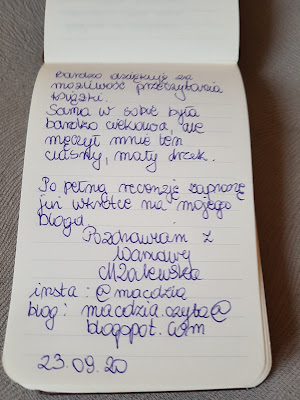 Bardzo dziękuję za
możliwość przeczytania
książki.
Sama w sobie była
bardzo ciekawa, ale
męczył mnie ten
ciasny, mały druk.
Po pełną recenzję zapraszę
już wkrótce na mojego
bloga
Pozdrawiam z
Warszawy
MZalewska
insta: @macdzia
blog: macdzia.czyta@
blogspot.com
23.09.20